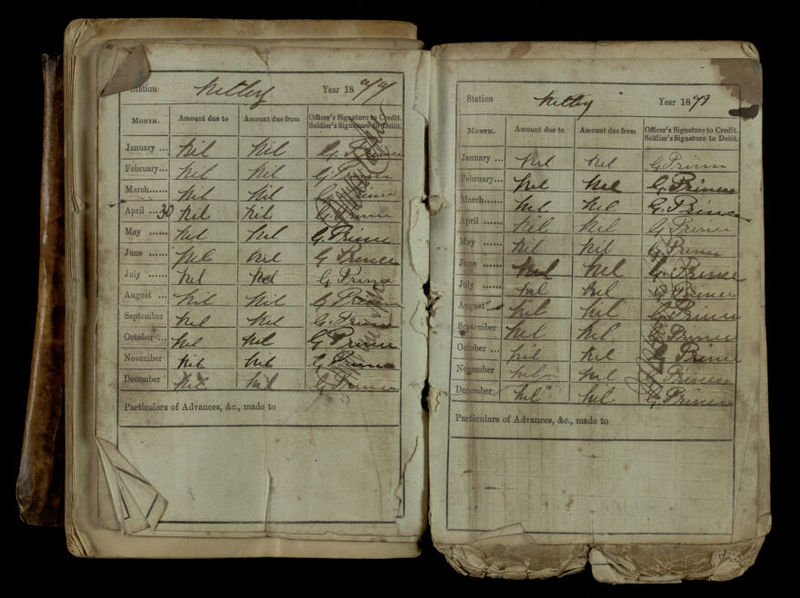 Station Netley Year 18
MONTH. Amount due to Amount due from Officer's Signature to Credit. Soldier's Signature to Debit.
January ... Nil Nil G. Prince
February... Nil Nil G. Prince
March...... Nil Nil G. Prince
April ... 30 Nil Nil G. Prince
May ...... Nil Nil G. Prince
June ...... Nil Nil G Prince
July ...... Nil Nil G. Prince
August ... Nil Nil G Prince
September Nil Nil G. Prince
October ... Nil Nil G Prince
November Nil Nil G Prince
December Nil Nil G Prince
Particulars of Advances, &c., made to
Station Netley Year 18
MONTH. Amount due to Amount due from Officer's Signature to Credit. Soldier's Signature to Debit.
January ... Nil Nil G Prince
February... Nil Nil G. Prince
March...... Nil Nil G. Prince
April ...... Nil Nil G Prince
May ...... Nil Nil G Prince
June ...... Nil Nil G. Prince
July ...... Nil Nil G Prince
August Nil Nil G Prince
September Nil Nil G Prince
October ... Nil Nil G Prince
November Nil Nil G Prince
December Nil Nil G. Prince
Particulars of Advances, &c., made to